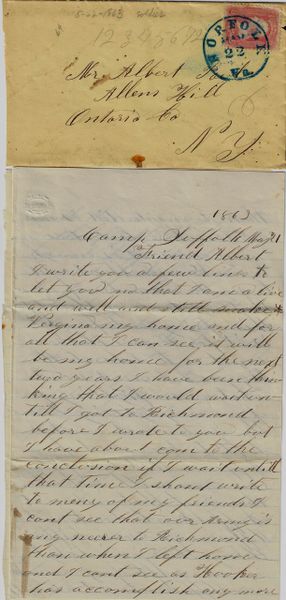 5-22-1863 soldier
NORFOLK
MAY
22
Va.
Mr. Albert
Allens Hill
Ontario Co
N Y
1863
Camp Suffolk May 21
Friend Albert
I write you a few lines to
let you no that I am alive
and well and still make
Virginia my home and for
all that I can see it will
be my home for the next
two years I have been thin
king that I would wait un
till I got to Richmond
before I wrote to you but
I have about come to the
conclusion if I wait untill
that time I shant write
to meny of my friends I
cant see that our Army is
any nearer to Richmond
than when I left home
and I cant see as Hooker
has accomplish any more